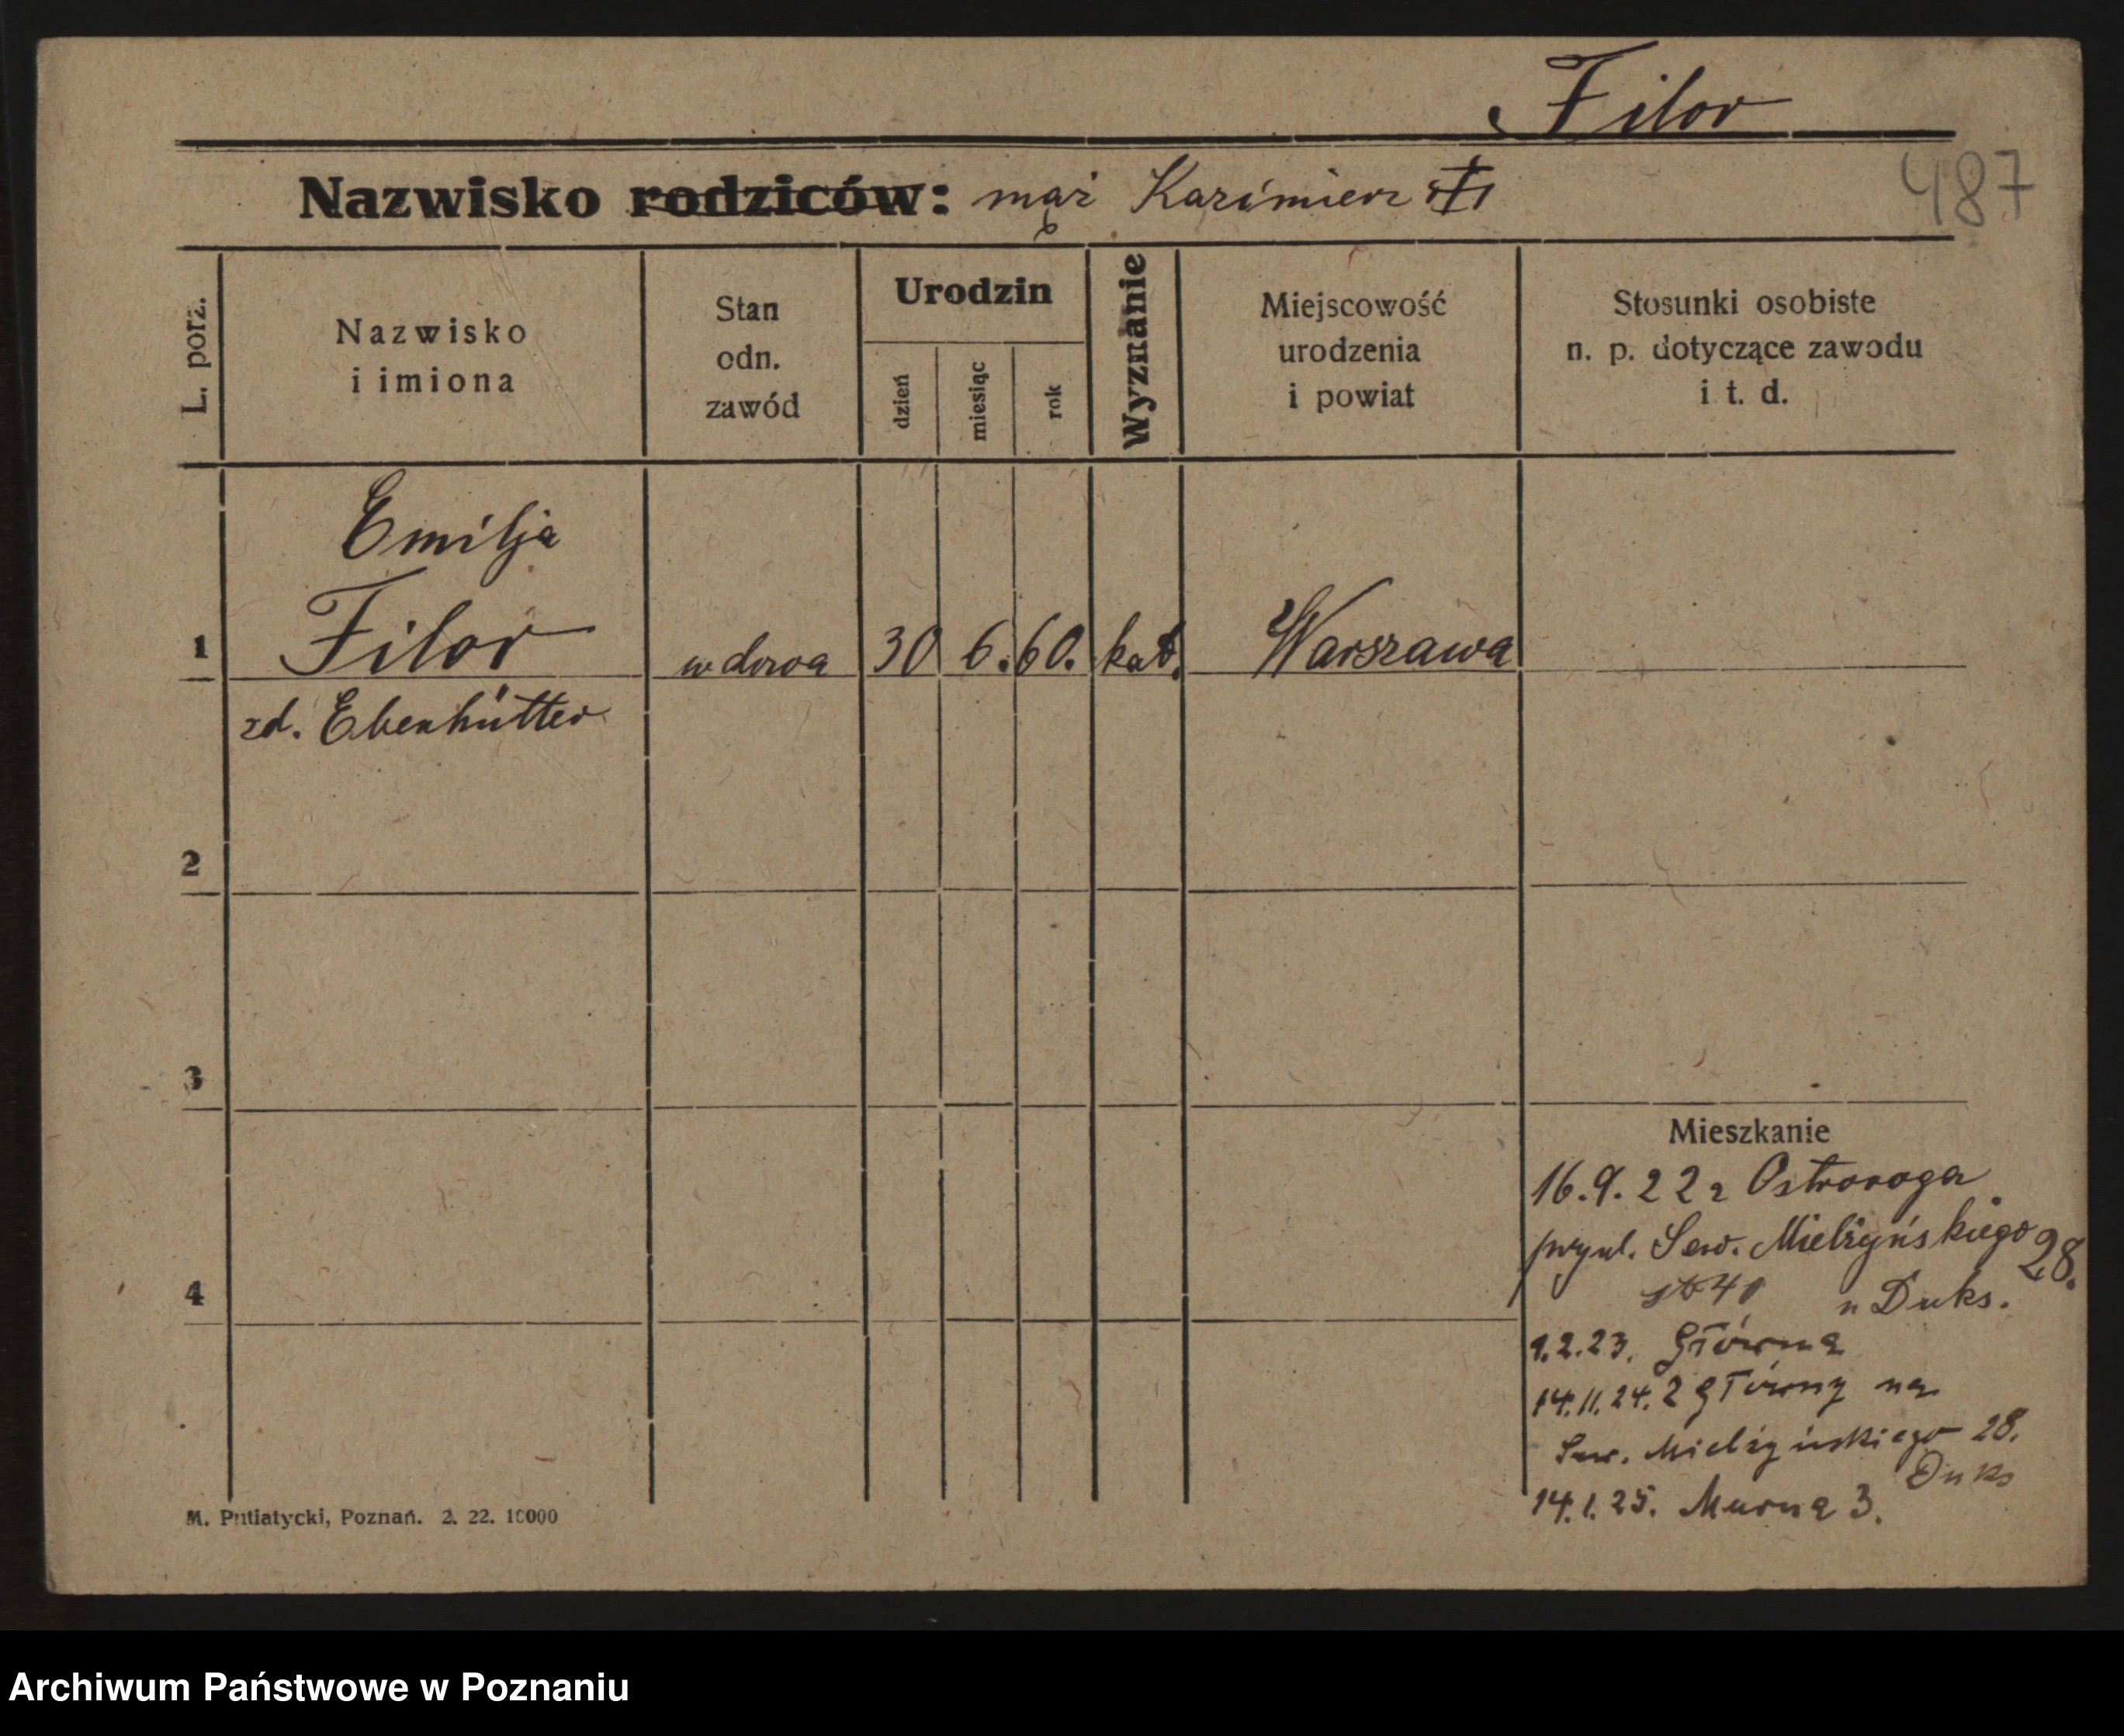 Filor
487
Nazwisko rodziców: mąż Kazimierz
L. porz.
Nazwisko
i imiona
Stan
odn.
zawód
Urodzin
dzień
miesiąc
rok
Wyznanie
Miejscowość
urodzenia
i powiat
Stosunki osobiste
n. p. dotyczące zawodu
i t. d.
Emilja
1 Filor wdowa 30 6. 60. kat. Warszawa
zd. Ebenhütter
2
3
Mieszkanie
16.9.22 z Ostroroga
przyul. Sew. Mielżyńskiego 28.
4
u Duks.
1.2.23. Główna
14.11.24. z Główny na
Sew. Mielżyńskiego 28.
Duks
14.1.25. Murna 3.
M. Putiatycki, Poznań. 2. 22. 10000
Archiwum Państwowe w Poznaniu